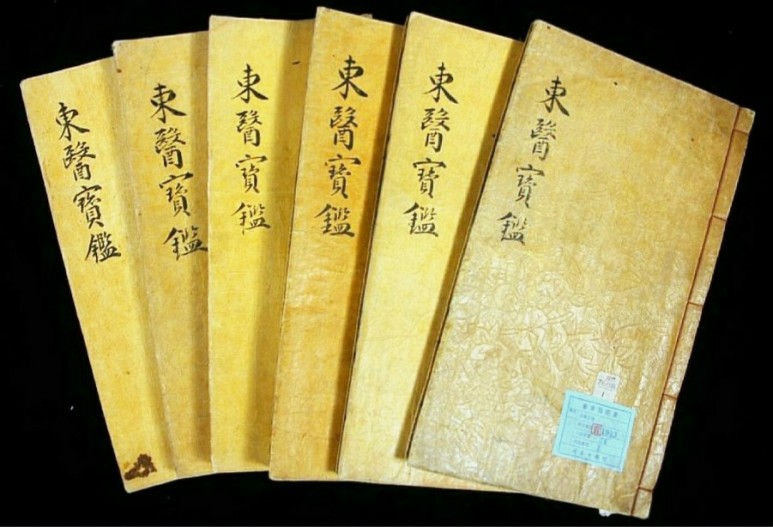 東醫寶鑑
東醫寶鑑
東醫寶鑑
東醫寶鑑
東醫寶鑑
東醫寶鑑